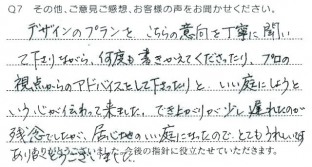 Q7 その他、ご意見ご感想、お客様の声をお聞かせください。
デザインのプランを こちらの意向を丁寧に聞い
て下さりながら、何度も書きかえてくださったり、プロの
視点からのアドバイスをして下さったりと、いい庭にしよう
という心が伝わって来ました。でき上がりが少し遅れたのが
残念でしたが、居心地のいい庭になったので、とてもうれしいです
ありがとうございました。今後の指針に役立たせていただきます。